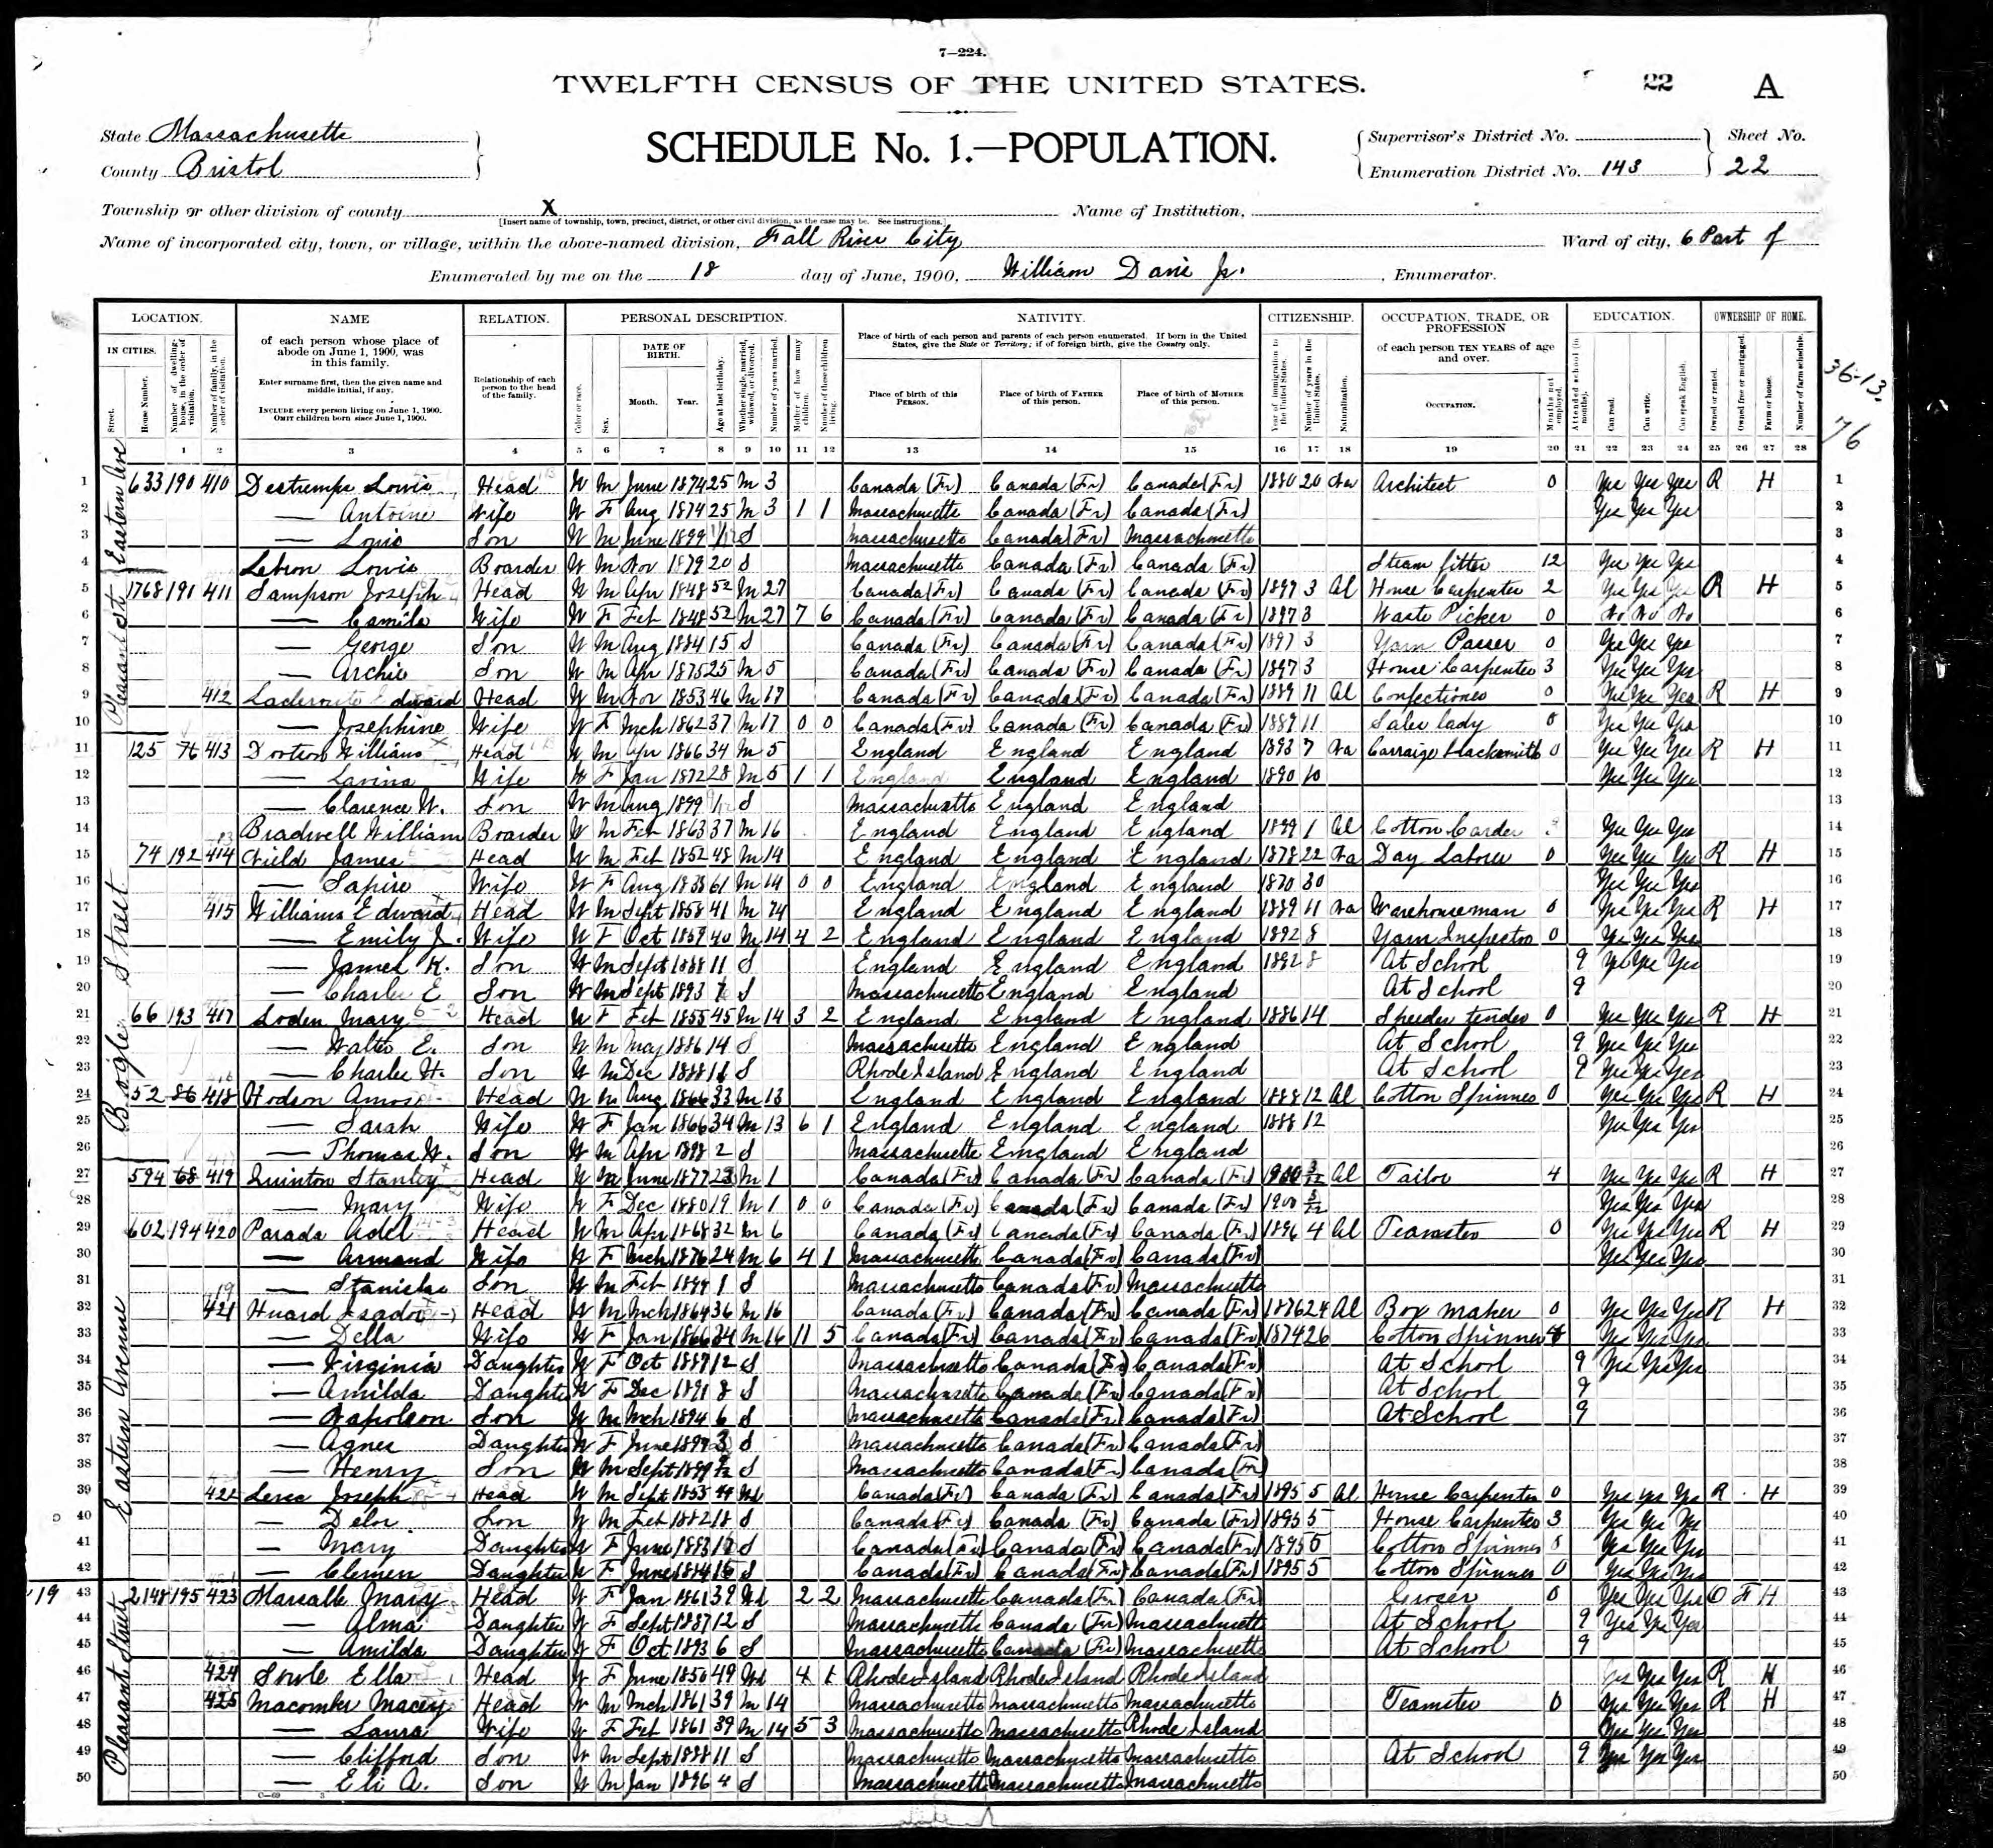 7—224.
TWELFTH CENSUS OF THE UNITED STATES.
22 A
State Massachusetts
County Bristol
SCHEDULE No. 1.—POPULATION.
Supervisor's District No.
Enumeration District No. 143
Sheet No.
22
Township or other division of county X
[Insert name of township, town, precinct, district, or other civil division, as the case may be. See instructions.]
Name of Institution,
Name of incorporated city, town, or village, within the above-named division, Fall River City
Ward of city, 6 Part of
Enumerated by me on the 18 day of June, 1900, William Davis Jr. , Enumerator.
LOCATION. NAME RELATION. PERSONAL DESCRIPTION. NATIVITY. CITIZENSHIP. OCCUPATION, TRADE, OR PROFESSION EDUCATION. OWNERSHIP OF HOME.
IN CITIES.
Street.
House Number.
Number of dwelling-house, in the order of visitation.
Number of family, in the order of visitation.
of each person whose place of abode on June 1, 1900, was in this family.
Enter surname first, then the given name and middle initial, if any.
INCLUDE every person living on June 1, 1900.
OMIT children born since June 1, 1900.
Relationship of each person to the head of the family.
Color or race.
Sex.
DATE OF BIRTH.
Month. Year.
Age at last birthday.
Whether single, married, widowed, or divorced.
Number of years married.
Mother of how many children.
Number of these children living.
Place of birth of each person and parents of each person enumerated. If born in the United States, give the State or Territory; if of foreign birth, give the Country only.
Place of birth of this PERSON.
Place of birth of FATHER of this person.
Place of birth of MOTHER of this person.
Year of immigration to the United States.
Number of years in the United States.
Naturalization.
of each person TEN YEARS of age and over.
OCCUPATION.
Months not employed.
Attended school (in months).
Can read.
Can write.
Can speak English.
Owned or rented.
Owned free or mortgaged.
Farm or house.
Number of farm schedule.
36-13.
76
1 2 3 4 5 6 7 8 9 10 11 12 13 14 15 16 17 18 19 20 21 22 23 24 25 26 27 28
Eastern Ave
Pleasant St
Bogle Street
Eastern Avenue
Pleasant Street
1 633 190 410 Destremps Louis Head W M June 1874 25 M 3 Canada (Fr) Canada (Fr) Canada (Fr) 1880 20 Na Architect 0 Yes Yes Yes R H 1
2 — Antoine Wife W F Aug 1874 25 M 3 1 1 Massachusetts Canada (Fr) Canada (Fr) Yes Yes Yes 2
3 — Louis Son W M June 1899 S Massachusetts Canada (Fr) Massachusetts 3
4 Lebron Louis Boarder W M Nov 1879 20 S Massachusetts Canada (Fr) Canada (Fr) Steam fitter 12 Yes Yes Yes 4
5 1768 191 411 Sampson Joseph Head W M Apr 1848 52 M 27 Canada (Fr) Canada (Fr) Canada (Fr) 1897 3 Al House Carpenter 2 Yes Yes Yes R H 5
6 — Camila Wife W F Feb 1848 52 M 27 7 6 Canada (Fr) Canada (Fr) Canada (Fr) 1897 3 Waste Picker 0 No No No 6
7 — George Son W M Aug 1884 15 S Canada (Fr) Canada (Fr) Canada (Fr) 1897 3 Yarn Passer 0 Yes Yes Yes 7
8 — Archie Son W M Apr 1875 25 M 5 Canada (Fr) Canada (Fr) Canada (Fr) 1897 3 House Carpenter 3 Yes Yes Yes 8
9 412 Edward Head W M Nov 1853 46 M 17 Canada (Fr) Canada (Fr) Canada (Fr) 1889 11 Al Confectioner 0 Yes Yes Yes R H 9
10 — Josephine Wife W F Mch 1862 37 M 17 0 0 Canada (Fr) Canada (Fr) Canada (Fr) 1889 11 Sales lady 0 Yes Yes Yes 10
11 125 76 413 William Head W M Apr 1866 34 M 5 England England England 1893 7 Na Carraige Blacksmith 0 Yes Yes Yes R H 11
12 — Lavina Wife W F Jan 1872 28 M 5 1 1 England England England 1890 10 Yes Yes Yes 12
13 — Clarence W. Son W M Aug 1899 S Massachusetts England England 13
14 Bradwell William Boarder W M Feb 1863 37 M 16 England England England 1899 1 Al Cotton Carder Yes Yes Yes 14
15 74 192 414 James Head W M Feb 1852 48 M 14 England England England 1878 22 Na Day Laborer 0 Yes Yes Yes R H 15
16 — Sapire Wife W F Aug 1838 61 M 14 0 0 England England England 1870 30 Yes Yes Yes 16
17 415 Williams Edward Head W M Sept 1858 41 M 14 England England England 1889 11 Na Warehouseman 0 Yes Yes Yes R H 17
18 — Emily J. Wife W F Oct 1859 40 M 14 4 2 England England England 1892 8 Yarn Inspector 0 Yes Yes Yes 18
19 — James K. Son W M Sept 1888 11 S England England England 1892 8 At School 9 Yes Yes Yes 19
20 — Charles E. Son W M Sept 1893 S Massachusetts England England At School 9 20
21 66 193 417 Loden Mary Head W F Feb 1855 45 M 14 3 2 England England England 1886 14 Speeder tender 0 Yes Yes Yes R H 21
22 — Walter E. Son W M May 1886 14 S Massachusetts England England At School 9 Yes Yes Yes 22
23 — Charles H. Son W M Dec 1888 11 S Rhode Island England England At School 9 Yes Yes Yes 23
24 52 86 418 Hodson Amos Head W M Aug 1866 33 M 13 England England England 1888 12 Al Cotton Spinner 0 Yes Yes Yes R H 24
25 — Sarah Wife W F Jan 1866 34 M 13 6 1 England England England 1888 12 Yes Yes Yes 25
26 — Thomas W. Son W M Apr 1898 2 S Massachusetts England England 26
27 594 68 419 Quinton Stanley Head W M June 1877 23 M 1 Canada (Fr) Canada (Fr) Canada (Fr) 1900 3/12 Al Tailor 4 Yes Yes Yes R H 27
28 — Mary Wife W F Dec 1880 19 M 1 0 0 Canada (Fr) Canada (Fr) Canada (Fr) 1900 3/12 Yes Yes Yes 28
29 602 194 420 Parada Adel Head W M Apr 1868 32 M 6 Canada (Fr) Canada (Fr) Canada (Fr) 1896 4 Al Teamster 0 Yes Yes Yes R H 29
30 — Armand Wife W F Mch 1876 24 M 6 4 1 Massachusetts Canada (Fr) Canada (Fr) Yes Yes Yes 30
31 — Stanislas Son W M Feb 1899 1 S Massachusetts Canada (Fr) Massachusetts 31
32 421 Huard Isador Head W M Mch 1864 36 M 16 Canada (Fr) Canada (Fr) Canada (Fr) 1876 24 Al Box maker 0 Yes Yes Yes R H 32
33 — Della Wife W F Jan 1866 34 M 16 11 5 Canada (Fr) Canada (Fr) Canada (Fr) 1874 26 Cotton Spinner Yes Yes Yes 33
34 — Virginia Daughter W F Oct 1887 12 S Massachusetts Canada (Fr) Canada (Fr) At School 9 Yes Yes Yes 34
35 — Amilda Daughter W F Dec 1891 8 S Massachusetts Canada (Fr) Canada (Fr) At School 9 35
36 — Napoleon Son W M Mch 1894 6 S Massachusetts Canada (Fr) Canada (Fr) At School 9 36
37 — Agnes Daughter W F June 1897 S Massachusetts Canada (Fr) Canada (Fr) 37
38 — Henry Son W M Sept 1899 S Massachusetts Canada (Fr) Canada (Fr) 38
39 422 Joseph Head W M Sept 1855 44 Wd Canada (Fr) Canada (Fr) Canada (Fr) 1895 5 Al House Carpenter 0 Yes Yes Yes R H 39
40 — Delor Son W M Feb 1882 18 S Canada (Fr) Canada (Fr) Canada (Fr) 1895 5 House Carpenter 3 Yes Yes Yes 40
41 — Mary Daughter W F June 1883 S Canada (Fr) Canada (Fr) Canada (Fr) 1895 5 Cotton Spinner Yes Yes Yes 41
42 — Clemen Daughter W F June 1884 S Canada (Fr) Canada (Fr) Canada (Fr) 1895 5 Cotton Spinner 0 Yes Yes Yes 42
19 43 2148 195 423 Marsalle Mary Head W F Jan 1861 39 Wd 2 2 Massachusetts Canada (Fr) Canada (Fr) Grocer 0 Yes Yes Yes O F H 43
44 — Alma Daughter W F Sept 1887 12 S Massachusetts Canada (Fr) Massachusetts At School 9 Yes Yes Yes 44
45 — Amilda Daughter W F Oct 1893 6 S Massachusetts Canada (Fr) Massachusetts At School 9 45
46 424 Sowle Ella Head W F June 1850 49 Wd 4 Rhode Island Rhode Island Rhode Island Yes Yes Yes R H 46
47 425 Macomber Macey Head W M Mch 1861 39 M 14 Massachusetts Massachusetts Massachusetts Teamster 0 Yes Yes Yes R H 47
48 — Laura Wife W F Feb 1861 39 M 14 5 3 Massachusetts Massachusetts Rhode Island Yes Yes Yes 48
49 — Clifford Son W M Sept 1888 11 S Massachusetts Massachusetts Massachusetts At School 9 Yes Yes Yes 49
50 — Eli A. Son W M Jan 1896 4 S Massachusetts Massachusetts Massachusetts 50